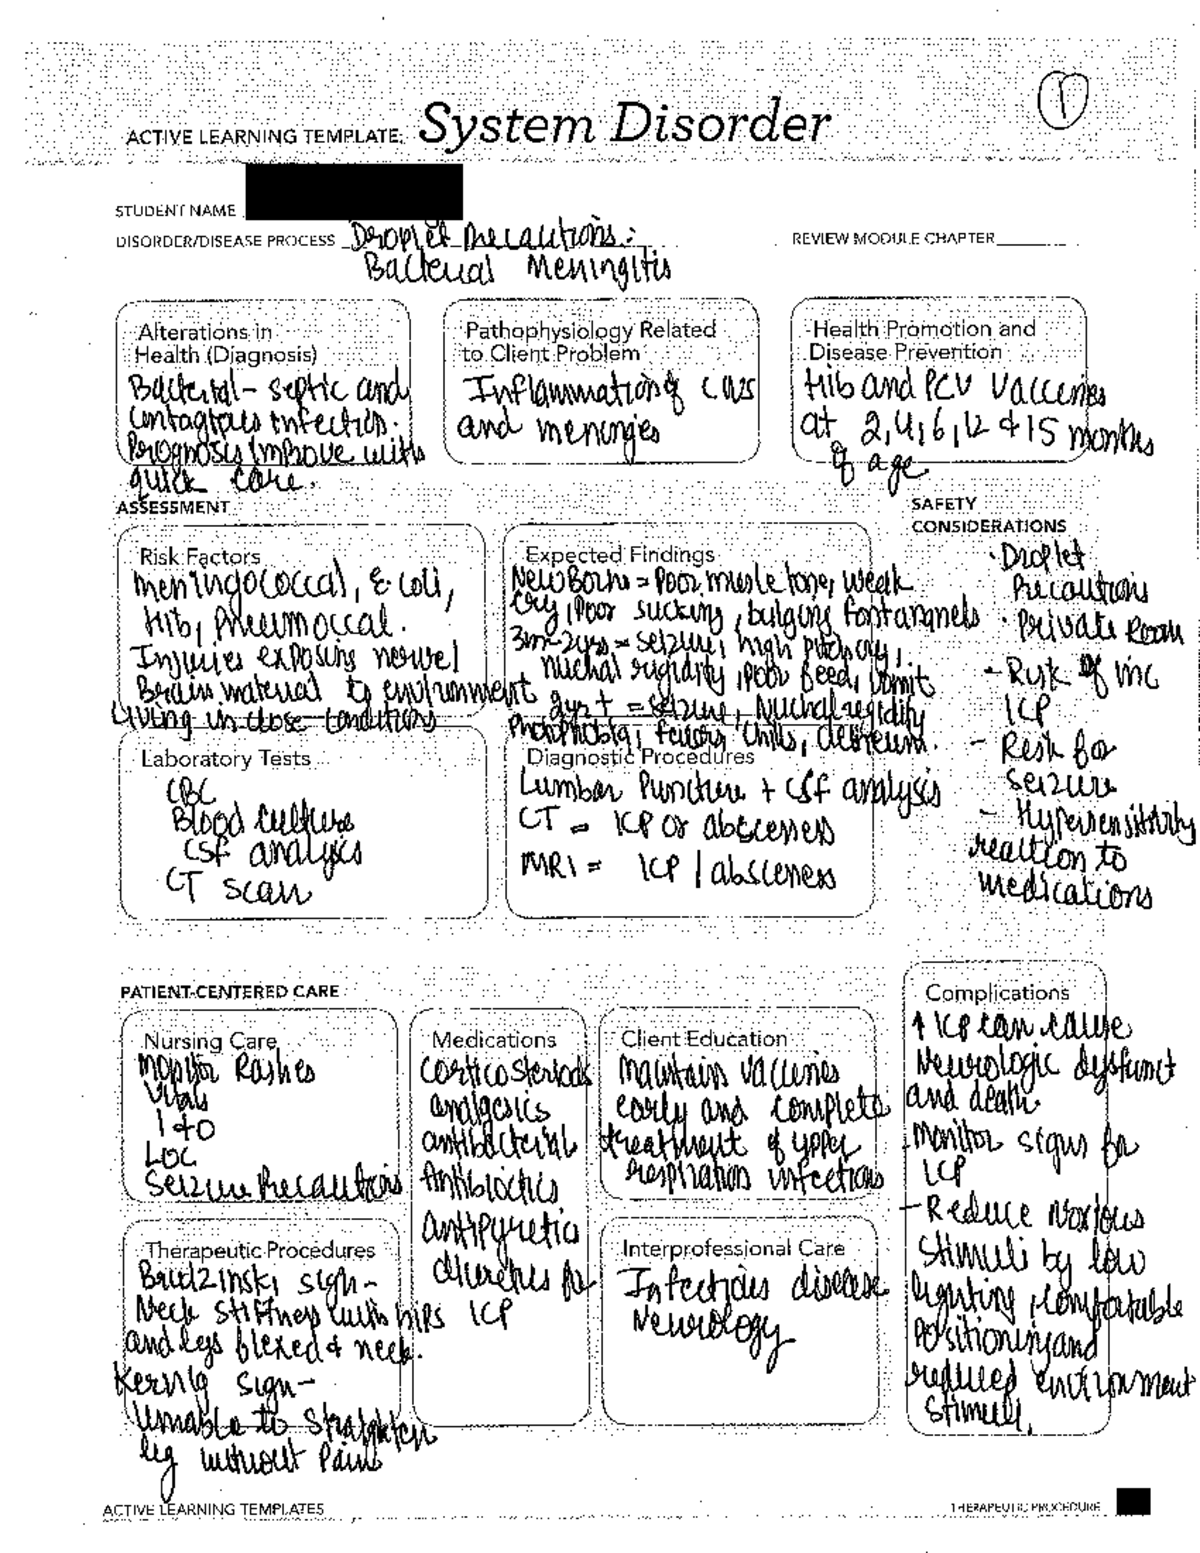 1
ACTIVE LEARNING TEMPLATE: System Disorder
STUDENT NAME
DISORDER/DISEASE PROCESS Droplet Precautions:
Bacterial Meningitis
REVIEW MODULE CHAPTER
Alterations in
Health (Diagnosis)
Bacterial - septic and
contagious infection.
Prognosis improve with
quick care.
Pathophysiology Related
to Client Problem
Inflammation of CNS
and meninges
Health Promotion and
Disease Prevention
Hib and PCV vaccines
at 2, 4, 6, 12 & 15 months
of age
ASSESSMENT
SAFETY
CONSIDERATIONS
Risk Factors
Meningococcal, E. coli,
Hib, Pneumoccal.
Injuries exposing nerve/
Brain material to environment
Living in close conditions
Expected Findings
NewBorns = Poor muscle tone, weak
cry, Poor sucking, bulging fontannels
3m-2yrs = seizure, high pitch cry,
, nuchal rigidity, poor feed, vomit
2yr + = seizure, Nuchal rigidity
Photophobia, fevers, chills, delirium.
· Droplet
Precautions
· Private Room
- Risk of inc
ICP
- Risk for
seizure
- Hypersensitivity
reaction to
medications
Laboratory Tests
CBC
Blood culture
CSF analysis
CT scan
Diagnostic Procedures
Lumbar Puncture + CSF analysis
CT = ICP or abscesses
MRI = ICP / abscesses
PATIENT-CENTERED CARE
Nursing Care
Monitor Rashes
Vitals
I & O
LOC
Seizure Precautions
Medications
corticosteriods
analgesics
antibacterial
Antibioctics
antipyretic
diuretics for
ICP
Client Education
Maintain vaccines
early and complete
treatment of upper
respiration infections
Complications
↑ ICP can cause
Neurologic dysfunct
and death
- monitor signs for
ICP
- Reduce noxious
stimuli by low
lighting, comfortable
positioning and
reduced environment
stimuli.
Therapeutic Procedures
Brudzinski sign -
Neck stiffness with hips
and legs flexed & neck.
Kernig sign -
unable to straighten
leg without pain
Interprofessional Care
Infectious disease
Neurology
ACTIVE LEARNING TEMPLATES
THERAPEUTIC PROCEDURE